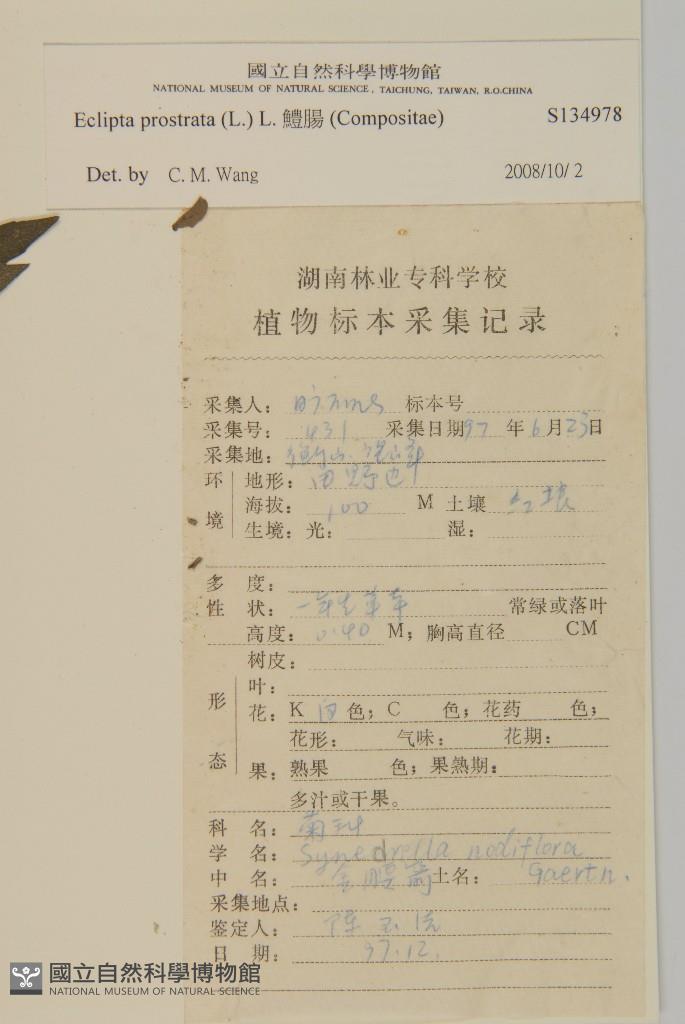 國立自然科學博物館
NATIONAL MUSEUM OF NATURAL SCIENCE, TAICHUNG, TAIWAN, R.O.CHINA
Eclipta prostrata (L.) L. 鱧腸 (Compositae) S134978
Det. by C. M. Wang 2008/10/ 2
湖南林业专科学校
植物标本采集记录
采集人: 标本号
采集号: 431 采集日期97年6月23日
采集地: 衡山
环境 地形: 田野边
海拔: 100 M 土壤 红壤
生境: 光: 湿:
多度:
性状: 一年生草本 常绿或落叶
高度: 0.40 M; 胸高直径 CM
形态 树皮:
叶:
花: K 白色; C 色; 花药 色;
花形: 气味: 花期:
果: 熟果 色; 果熟期:
多汁或干果。
科名: 菊科
学名: Synedrella nodiflora
中名: 金腰箭 土名: Gaertn.
采集地点:
鉴定人: 陈
日期: 97.12.
國立自然科學博物館
NATIONAL MUSEUM OF NATURAL SCIENCE